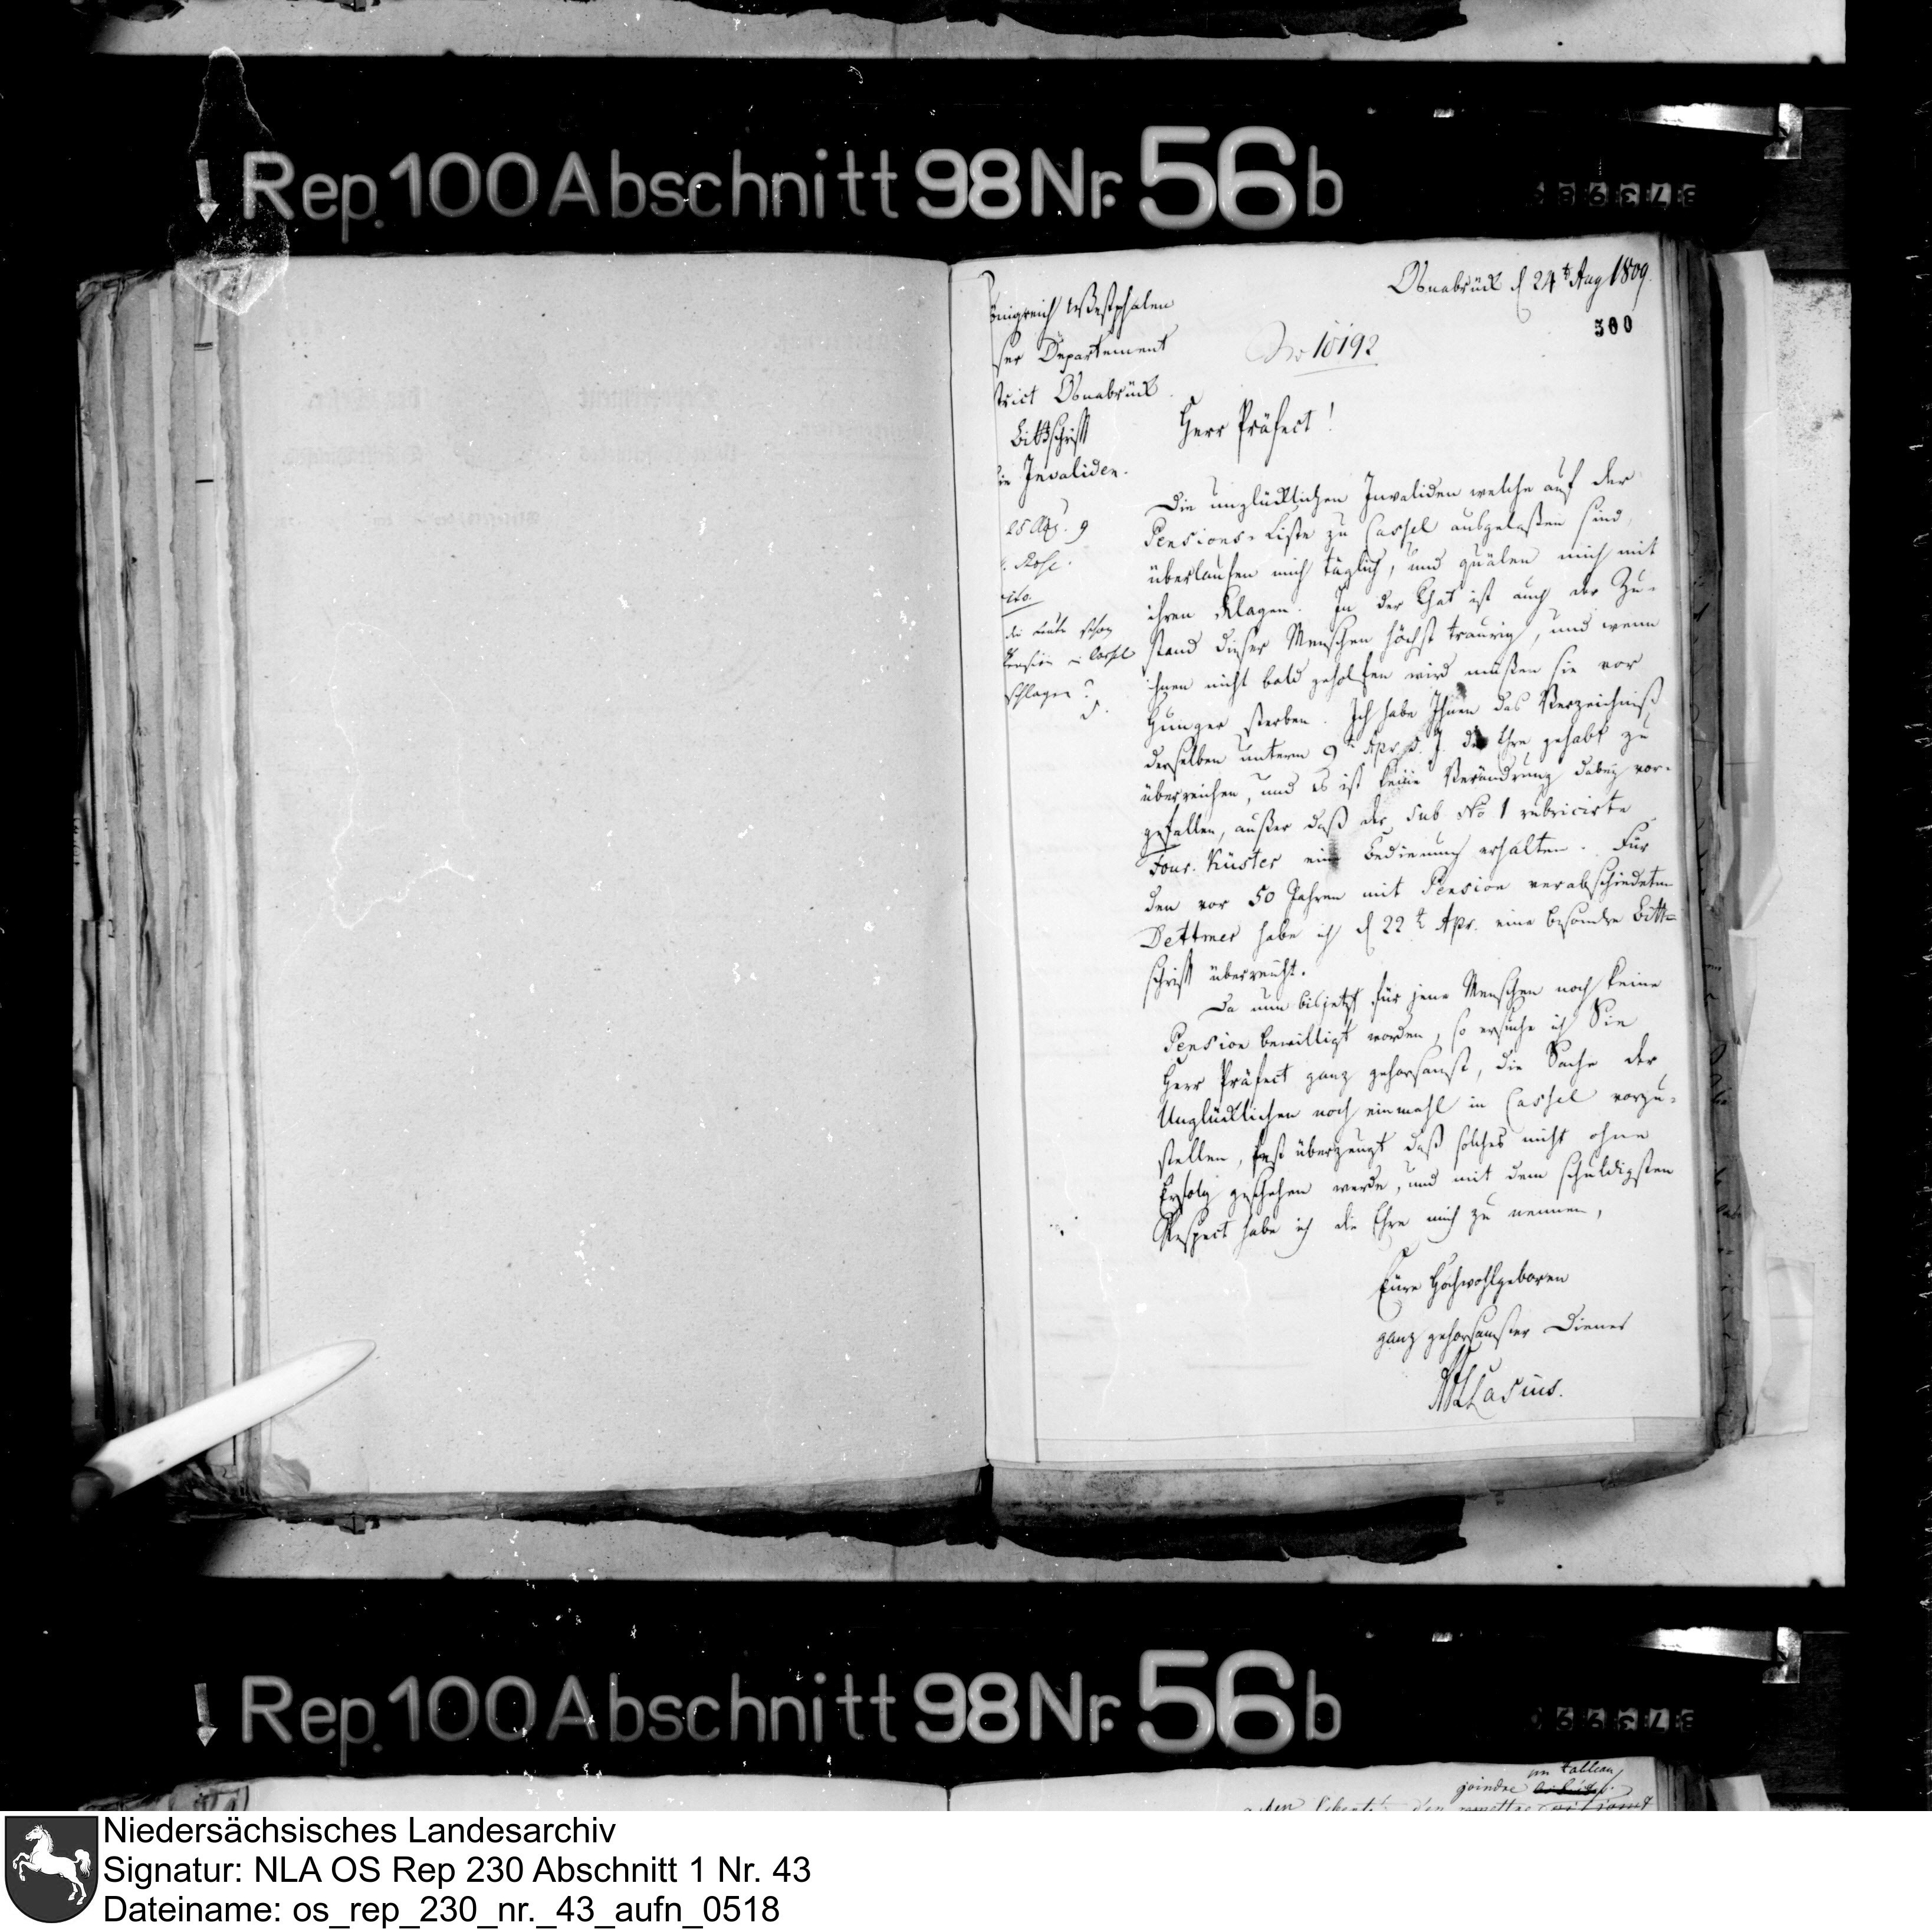 Rep. 100 Abschnitt 98 Nr. 56 b
Osnabrück d 24t Aug 1809.
300
önigreich Westphalen
ser Departement
trict Osnabrück
Bittschrift
ie Invaliden.
No 10192
Herr Präfect!
die Leute schon
Pension in Cassel
schlagen?
Die unglücklichen Invaliden welche auf der
Pensions-Liste zu Cassel ausgelaßen sind,
überlaufen mich täglich, und quälen mich mit
ihren Klagen. In der That ist auch der Zu-
stand dieser Menschen höchst traurig, und wenn
ihnen nicht bald geholfen wird müßen sie vor
Hunger sterben. Ich habe Ihnen das Verzeichniß
derselben unterm 9t Apr. d. J. die Ehre gehabt zu
überreichen, und es ist keine Verändrung dabey vor-
gefallen, außer daß der sub No 1 rubricirte
Four. Küster eine Bedienung erhalten. Für
den vor 50 Jahren mit Pension verabschiedeten
Dettmer habe ich d 22t Apr. eine besondre Bitt-
schrift überreicht.
Da nun bis jetzt für jene Menschen noch keine
Pension bewilligt worden, so ersuche ich Sie
Herr Präfect ganz gehorsamst, die Sache der
Unglücklichen noch einmahl in Cassel vorzu-
stellen, fest überzeugt daß solches nicht ohne
Erfolg geschehen werde, und mit dem schuldigsten
Respect habe ich die Ehre mich zu nennen,
Eure Hochwohlgeboren
ganz gehorsamster Diener
Lasius.
Rep. 100 Abschnitt 98 Nr. 56 b
un tableau
joindre
Niedersächsisches Landesarchiv
Signatur: NLA OS Rep 230 Abschnitt 1 Nr. 43
Dateiname: os_rep_230_nr._43_aufn_0518